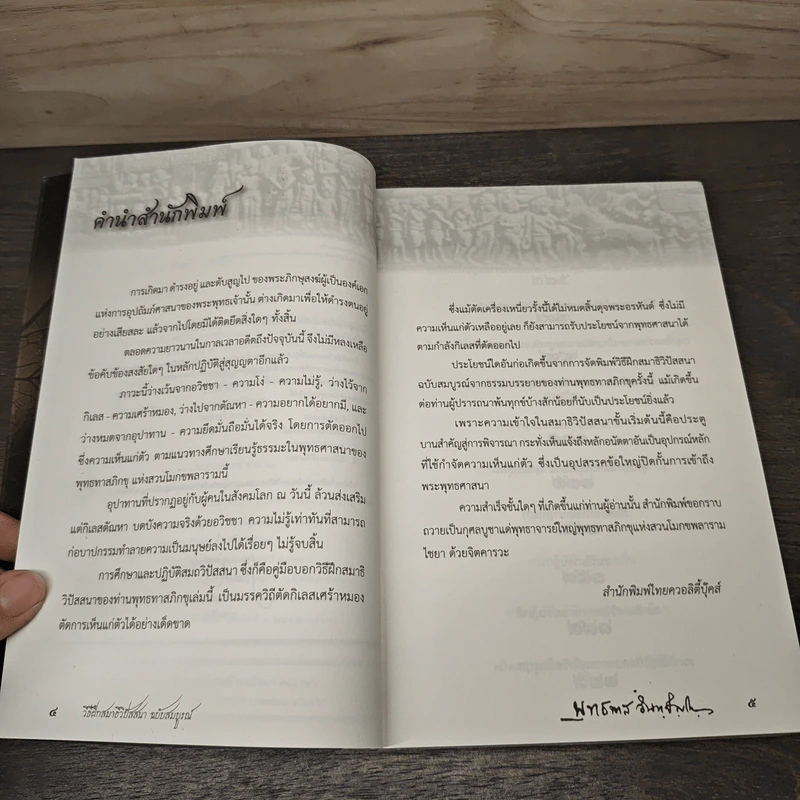 คำนำสำนักพิมพ์
การเกิดมา ดำรงอยู่ และดับสูญไป ของพระภิกษุสงฆ์ผู้เป็นองค์เอก
แห่งการอุปถัมภ์ศาสนาของพระพุทธเจ้านั้น ต่างเกิดมาเพื่อให้ดำรงตนอยู่
อย่างเสียสละ แล้วจากไปโดยมิได้ติดยึดสิ่งใดๆ ทั้งสิ้น
ตลอดความยาวนานในกาลเวลาอดีตถึงปัจจุบันนี้ จึงไม่มีหลงเหลือ
ข้อคับข้องสงสัยใดๆ ในหลักปฏิบัติสู่สุญญตาอีกแล้ว
ภาวะนี้ว่างเว้นจากอวิชชา - ความโง่ - ความไม่รู้, ว่างไว้จาก
กิเลส - ความเศร้าหมอง, ว่างไปจากตัณหา - ความอยากได้อยากมี, และ
ว่างหมดจากอุปาทาน - ความยึดมั่นถือมั่นได้จริง โดยการตัดออกไป
ซึ่งความเห็นแก่ตัว ตามแนวทางศึกษาเรียนรู้ธรรมะในพุทธศาสนาของ
พุทธทาสภิกขุ แห่งสวนโมกขพลารามนี้
อุปาทานที่ปรากฏอยู่กับผู้คนในสังคมโลก ณ วันนี้ ล้วนส่งเสริม
แต่กิเลสตัณหา บดบังความจริงด้วยอวิชชา ความไม่รู้เท่าทันที่สามารถ
ก่อบาปกรรมทำลายความเป็นมนุษย์ลงไปได้เรื่อยๆ ไม่รู้จบสิ้น
การศึกษาและปฏิบัติสมถวิปัสสนา ซึ่งก็คือคู่มือบอกวิธีฝึกสมาธิ
วิปัสสนาของท่านพุทธทาสภิกขุเล่มนี้ เป็นมรรควิถีตัดกิเลสเศร้าหมอง
ตัดการเห็นแก่ตัวได้อย่างเด็ดขาด
๔ วิธีฝึกสมาธิวิปัสสนา ฉบับสมบูรณ์
ซึ่งแม้ตัดเครื่องเหนี่ยวรั้งนี้ได้ไม่หมดสิ้นดุจพระอรหันต์ ซึ่งไม่มี
ความเห็นแก่ตัวเหลืออยู่เลย ก็ยังสามารถรับประโยชน์จากพุทธศาสนาได้
ตามกำลังกิเลสที่ตัดออกไป
ประโยชน์ใดอันก่อเกิดขึ้นจากการจัดพิมพ์วิธีฝึกสมาธิวิปัสสนา
ฉบับสมบูรณ์จากธรรมบรรยายของท่านพุทธทาสภิกขุครั้งนี้ แม้เกิดขึ้น
ต่อท่านผู้ปรารถนาพ้นทุกข์บ้างสักน้อยก็นับเป็นประโยชน์ยิ่งแล้ว
เพราะความเข้าใจในสมาธิวิปัสสนาขั้นเริ่มต้นนี้คือประตู
บานสำคัญสู่การพิจารณา กระทั่งเห็นแจ้งถึงหลักอนัตตาอันเป็นอุปกรณ์หลัก
ที่ใช้กำจัดความเห็นแก่ตัว ซึ่งเป็นอุปสรรคข้อใหญ่ปิดกั้นการเข้าถึง
พระพุทธศาสนา
ความสำเร็จขั้นใดๆ ที่เกิดขึ้นแก่ท่านผู้อ่านนั้น สำนักพิมพ์ขอกราบ
ถวายเป็นกุศลบูชาแด่พุทธาจารย์ใหญ่พุทธทาสภิกขุแห่งสวนโมกขพลาราม
ไชยา ด้วยจิตคารวะ
สำนักพิมพ์ไทยควอลิตี้บุ๊คส์
พุทธทาส อินทปัญโญ ๕